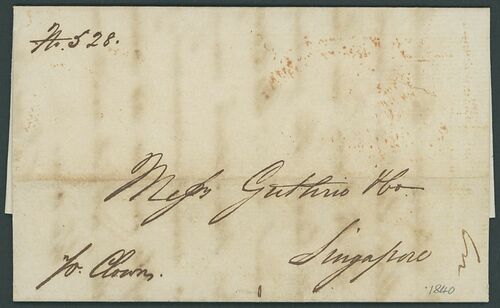 No. 528.
Messrs Guthrie & Co.
Singapore
pr. Clown.
1840